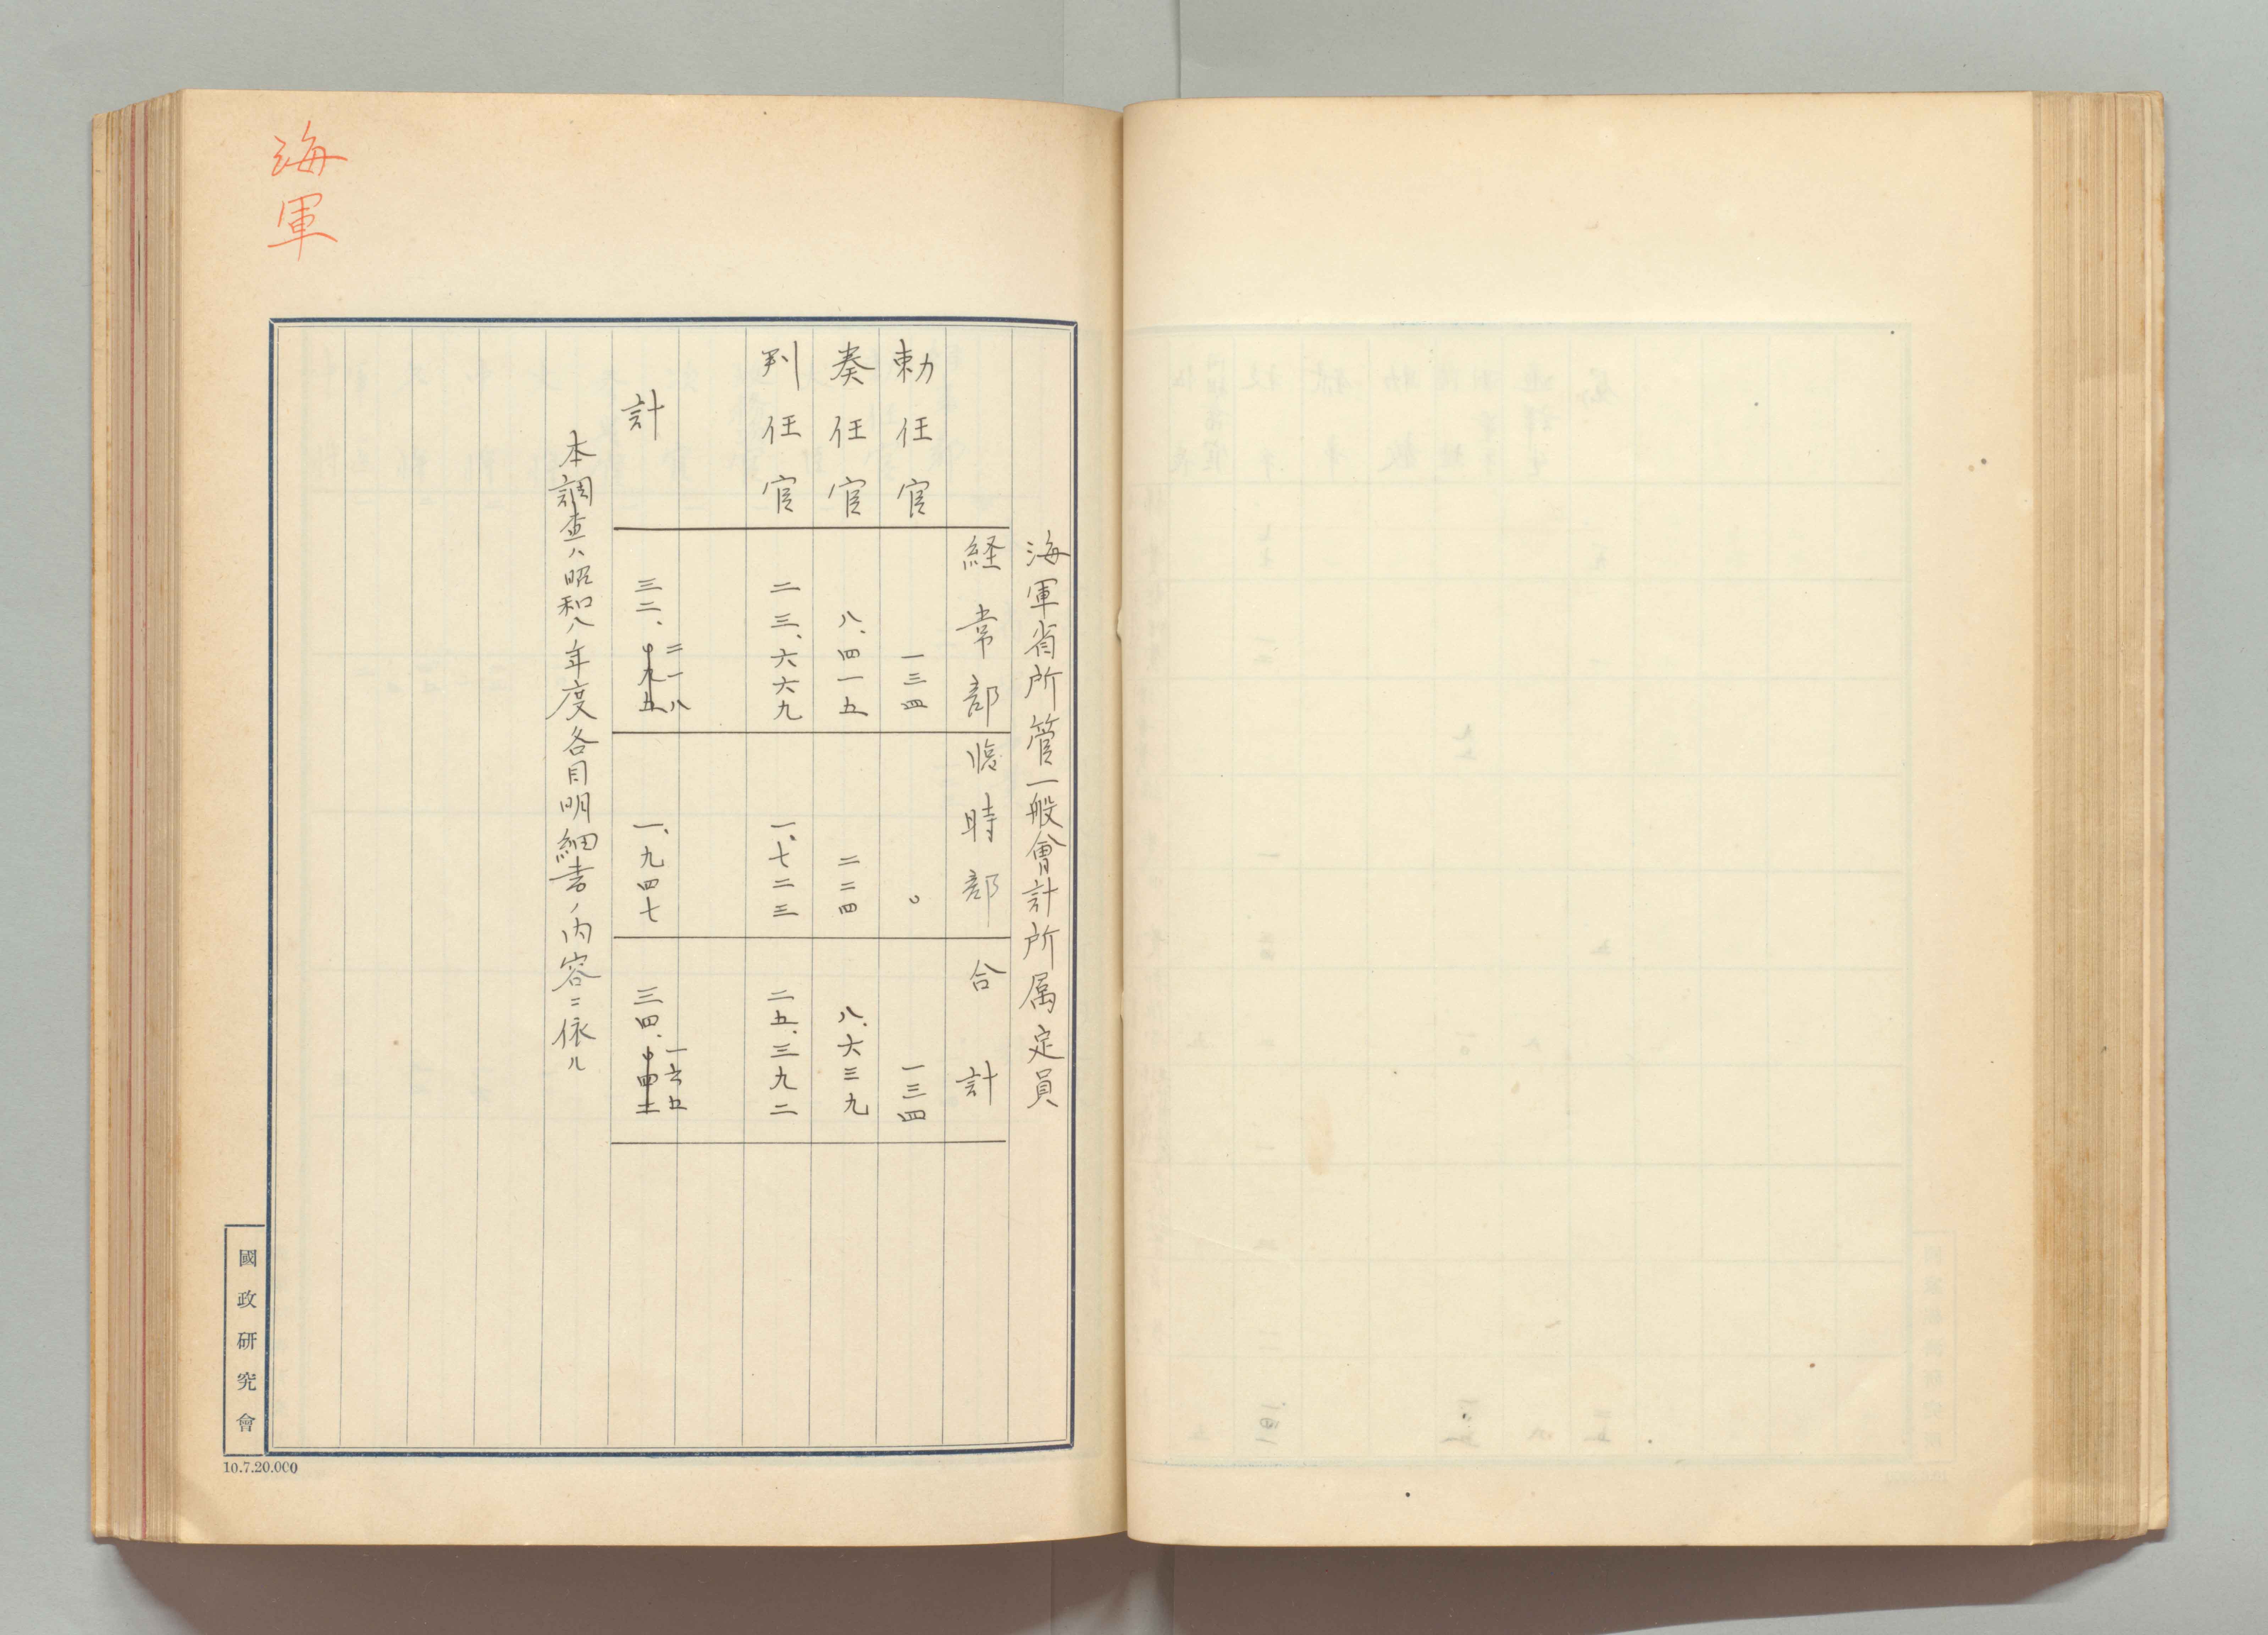 海軍
海軍省所管一般會計所属定員
経常部 臨時部 合計
勅任官 一三四 〇 一三四
奏任官 八、四一五 二二四 八、六三九
判任官 二三、六六九 一、七二三 二五、三九二
二一八 一六五
計 三二、 一、九四七 三四、
本調査ハ昭和八年度各目明細書ノ内容ニ依ル
國政研究會
10.7.20.000